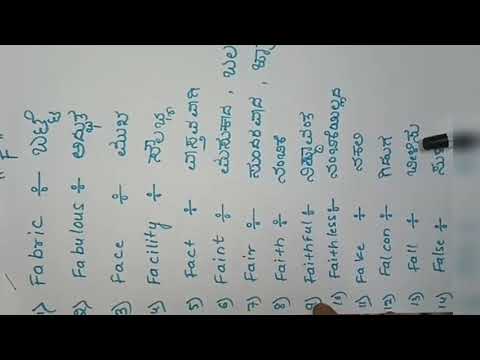 "F"
1) Fabric ÷ ಬಟ್ಟೆ
2) Fabulous ÷ ಅದ್ಭುತ
3) Face ÷ ಮುಖ
4) Facility ÷ ಸೌಲಭ್ಯ
5) Fact ÷ ವಾಸ್ತವವಾಗಿ
6) Faint ÷ ಮಸುಕಾದ,
7) Fair ÷ ಸುಂದರವಾದ,
8) Faith ÷ ನಂಬಿಕೆ
9) Faithful ÷ ನಿಷ್ಠಾವಂತ
10) Faithless ÷ ನಂಬಿಕೆಯಿಲ್ಲದ
11) Fake ÷ ನಕಲಿ
12) Falcon ÷ ಗಿಡುಗ
13) Fall ÷ ಬೀಳಿಸು
14) False ÷